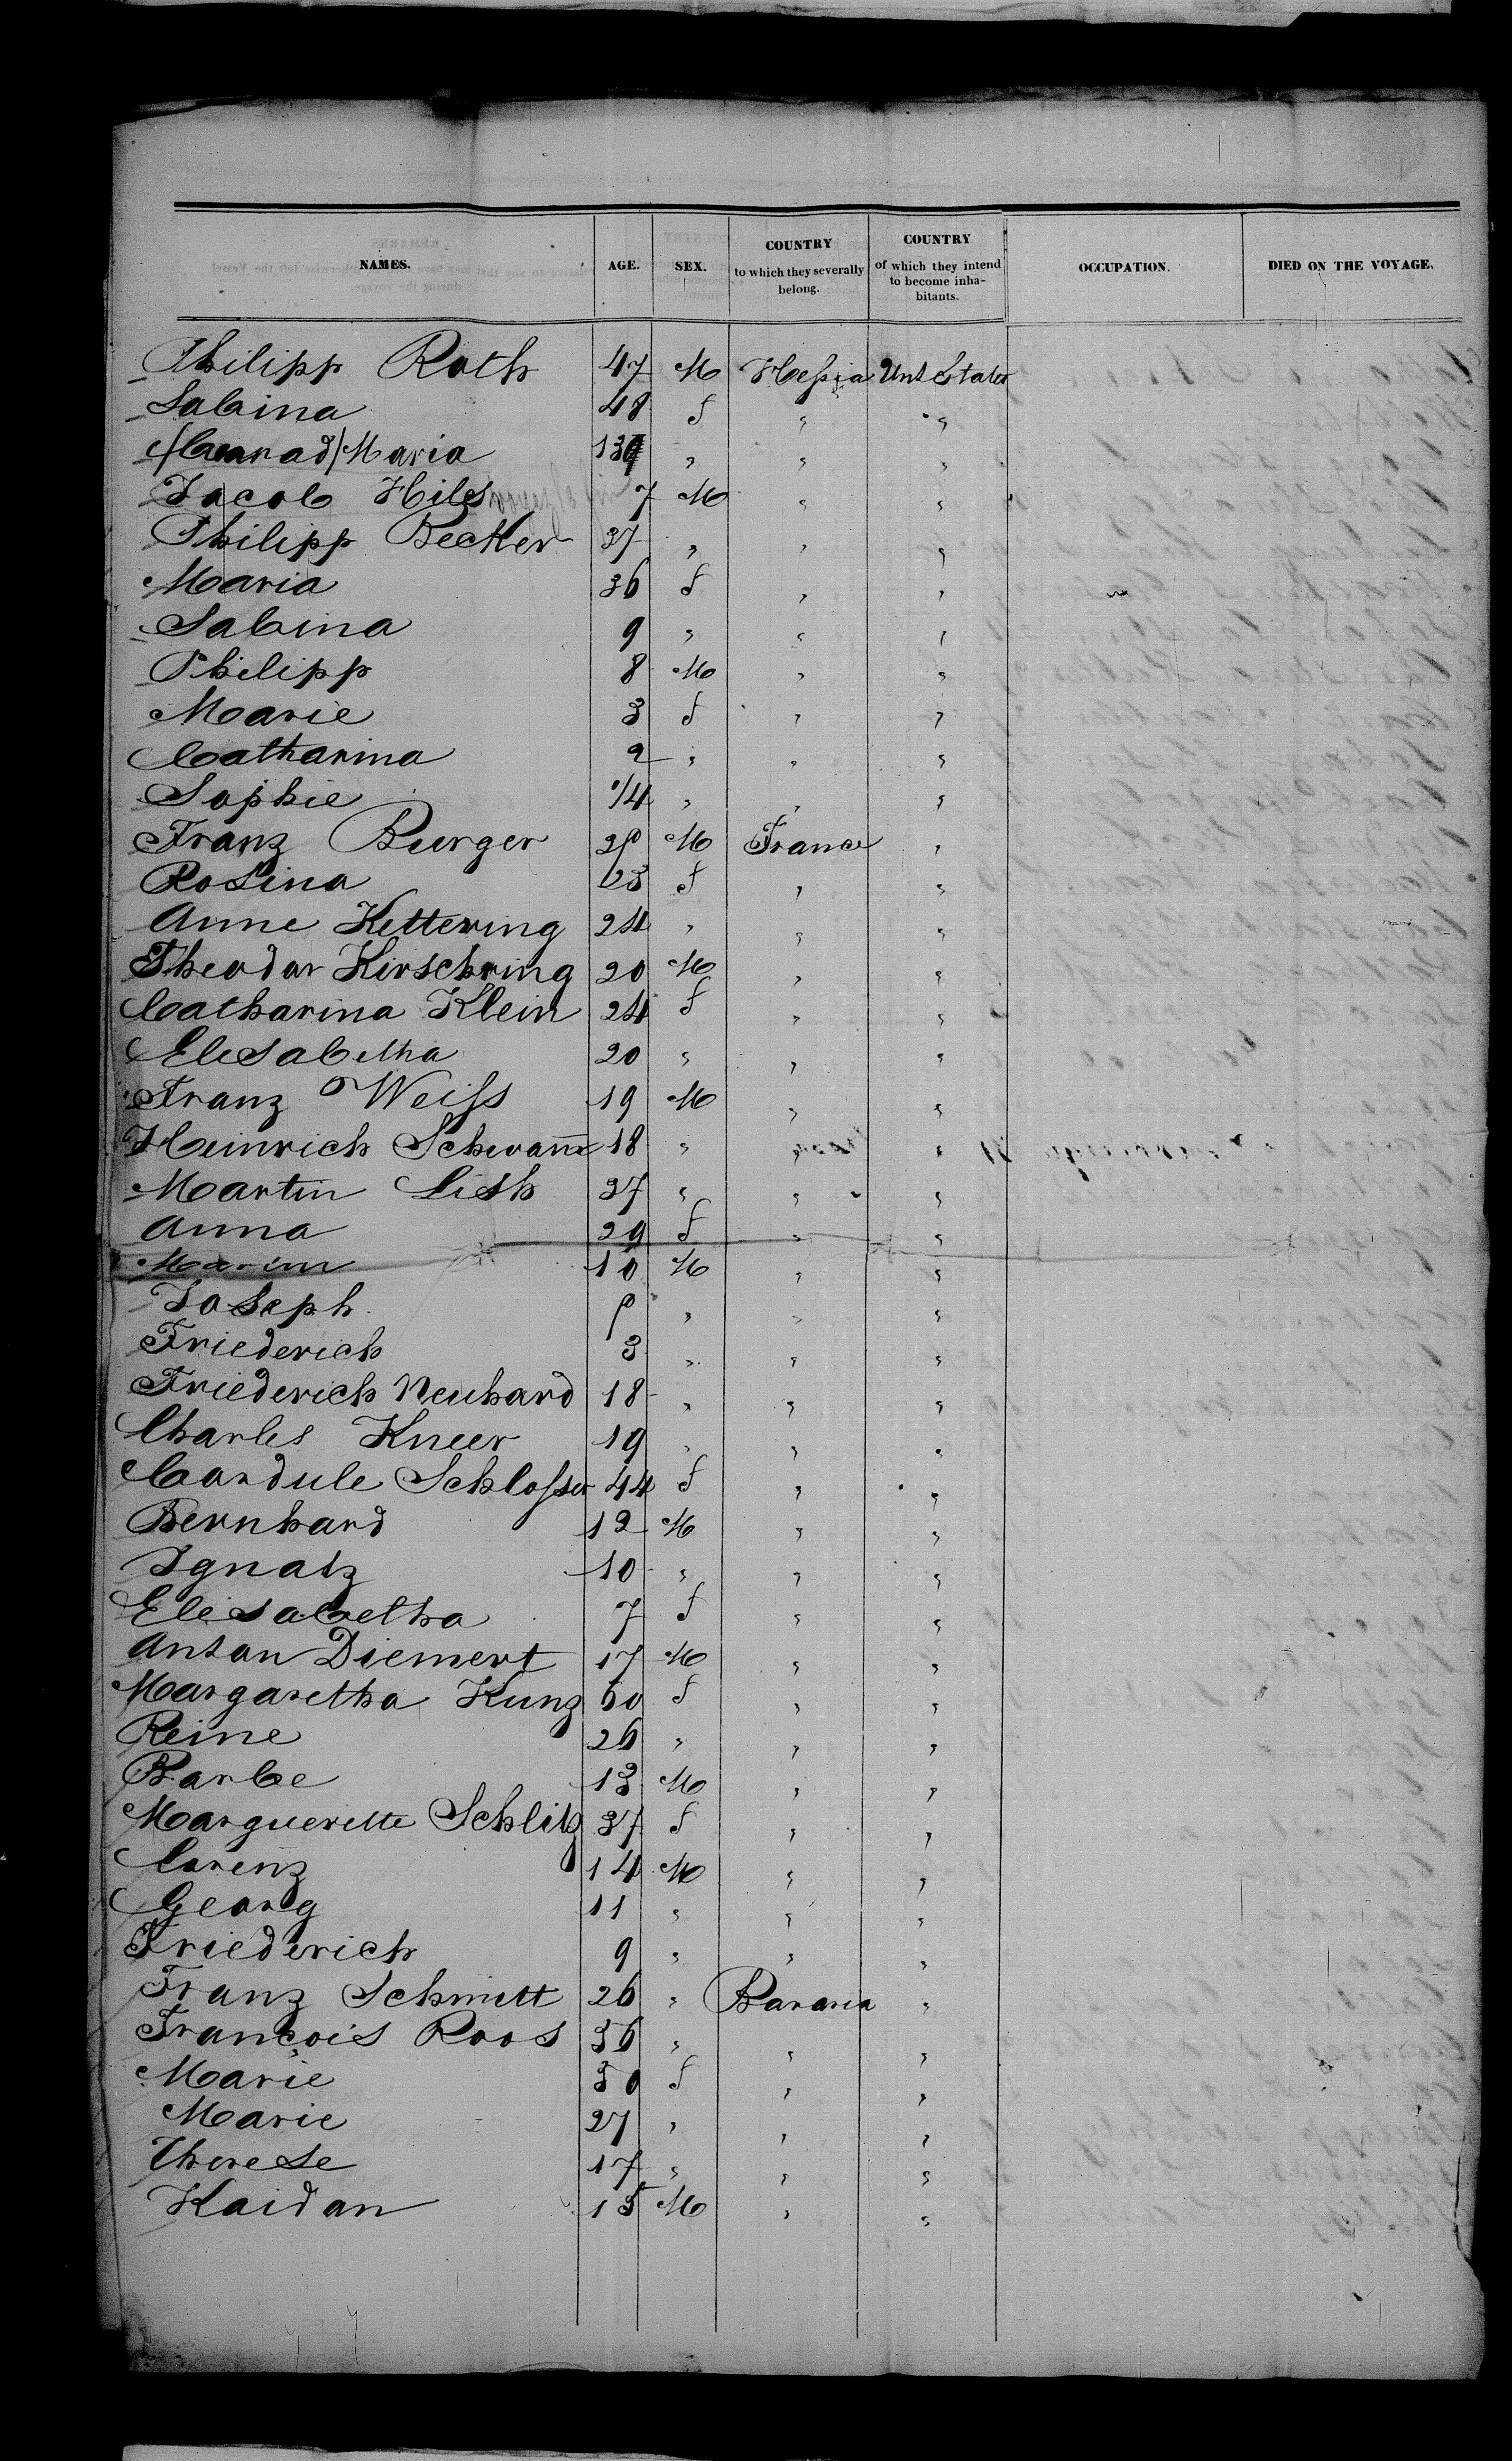 NAMES. AGE. SEX. COUNTRY to which they severally belong. COUNTRY of which they intend to become inhabitants. OCCUPATION. DIED ON THE VOYAGE.
Philipp Roth 47 M Hessia Unt States
Sabina 48 f " "
/Conrad/ Maria " " "
Jacob Hiles 7 M " "
Philipp Becker 37 " " "
Maria 36 f " "
Sabina 9 " " "
Philipp 8 M " "
Marie 3 f " "
Catharina 2 " " "
Sophie 1/4 " " "
Franz Burger M France "
Rosina 23 f " "
Anne Kettering 24 " " "
Theodor Kirschving 20 M " "
Catharina Klein 24 f " "
Elisabetha 20 " " "
Franz Weiss 19 M " "
Heinrich Schwann 18 " " "
Martin 37 " " "
Anna 29 f " "
Martin 10 M " "
Joseph " " "
Friederich 3 " " "
Friederich Neuhard 18 " " "
Charles Kneer 19 " " "
Cordule Schlosser 44 f " "
Bernhard 12 M " "
Ignatz 10 " " "
Elisabetha 7 f " "
Anton Diemert 17 M " "
Margaretha Kunz 60 f " "
Reine 26 " " "
Barbe 13 M " "
Marguerette Schlitz 37 f " "
Lorenz 14 M " "
Georg 11 " " "
Friederich 9 " " "
Franz Schmitt 26 " Bavaria "
François Roos 56 " " "
Marie 50 f " "
Marie 27 " " "
Therese 17 " " "
Kaidan 15 M " "